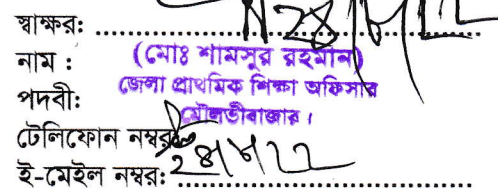 স্বাক্ষর: ........................
নাম : (মোঃ শামসুর রহমান)
পদবী: জেলা প্রাথমিক শিক্ষা অফিসার
মৌলভীবাজার।
টেলিফোন নম্বর
ই-মেইল নম্বর: ........................